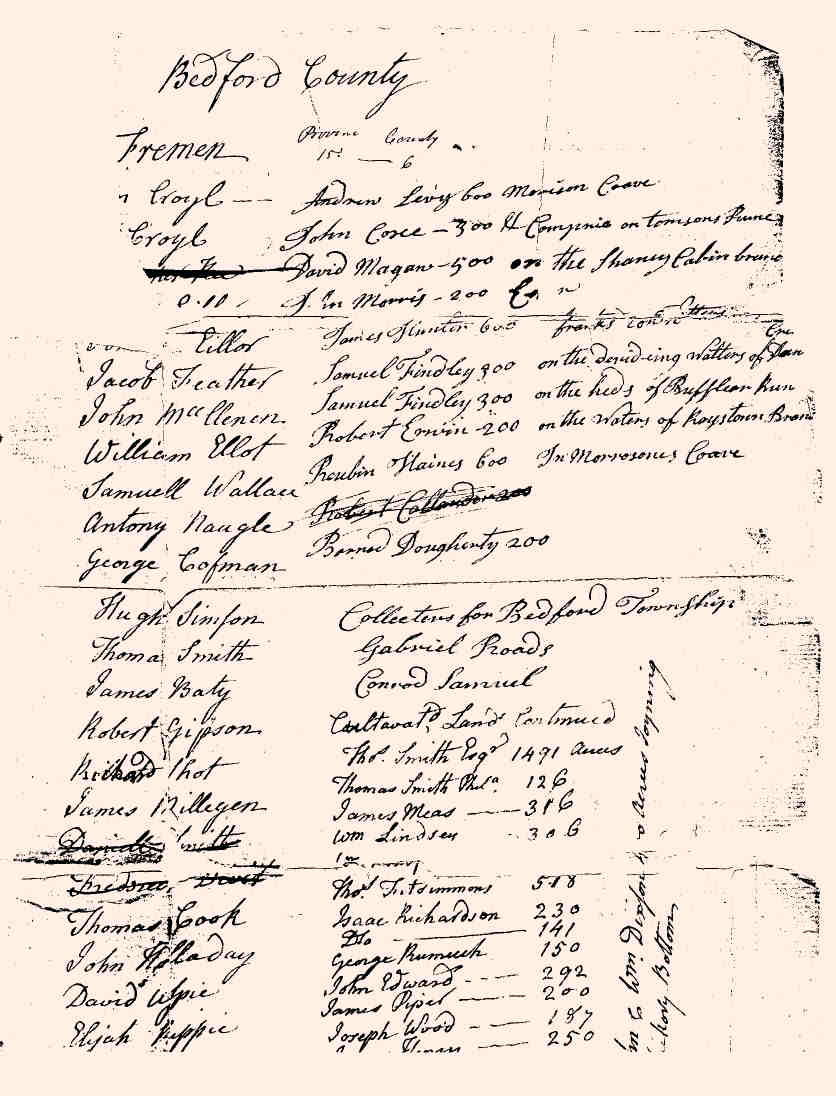 Bedford County
Fremen Province County
15s — 6
Croyl -- Andrew Levy 600 Morison Coave
Croyl John Coxe - 300 & Compnie on tomsons Rune
David Magaw - 500 on the Shaney Cabin branc
0.10 Morris - 200
Eillor James Hunter 600 franks
Jacob Feather Samuel Findley 300 on the devid-eing watters of
John McClenen Samuel Findley 300 on the heds of Bufflear Run
William Ellot Robert Erwin - 200 on the waters of Raystown Bran
Samuell Wallace Reubin Haines 600 In Morrosones Coave
Antony Naugle Robert Callender 200
George Cofman Barned Dougherty 200
Hugh Simson Collecters for Bedford Township
Thoma Smith Gabriel Roads
James Baty Conrod Samuel
Robert Gipson Cultavatd Land Continued
Richard Shot Thos. Smith Esqr 1491 Acres
James Millegen Thomas Smith Phila 126
James Meas — 316
Daniell Smith Wm Lindsey 306
Thos Fitsimmons 518
Thomas Cook Isaac Richardson 230
Do — 141
John Holladay George Rumuch 150
John Edward --- 292
David Espie James Piper — 200
Joseph Wood -- 187
Elijah Pippie 250
Wm. Dixson acrus Joyning
Bottom